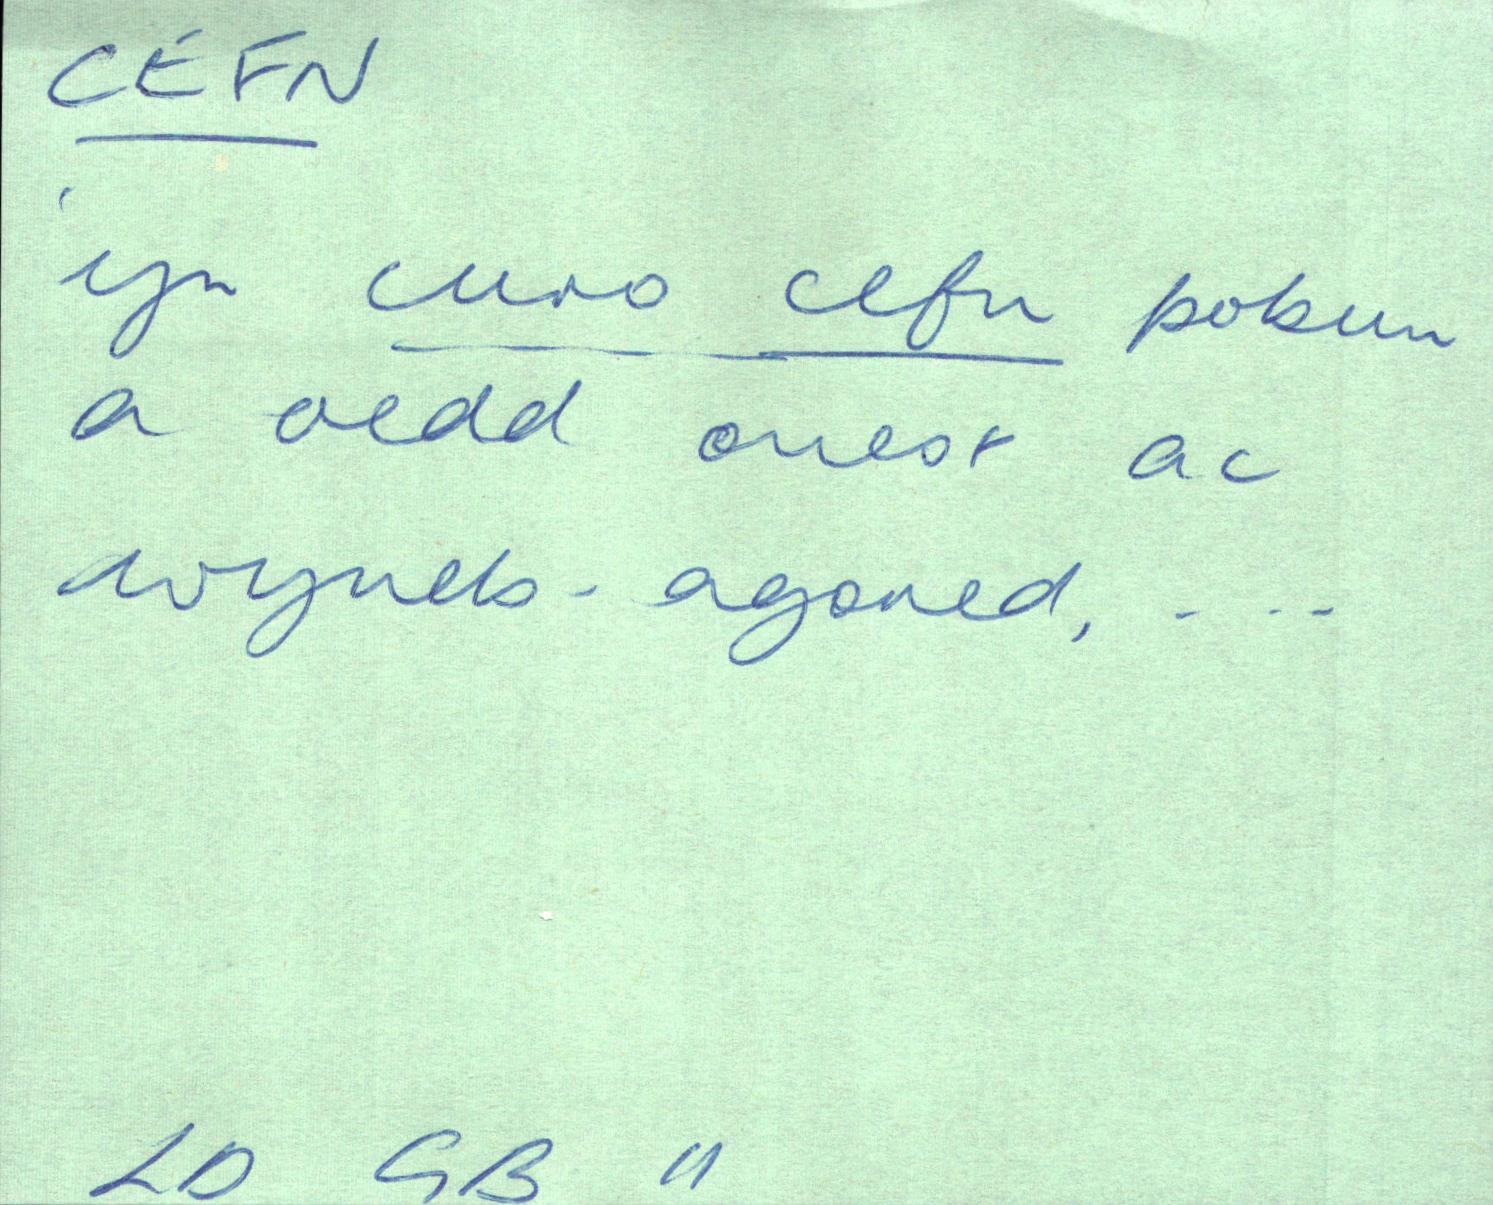 CEFN
'yn curo cefn pobun
a oedd onest ac
wyneb-agored, ...
LD GB 11